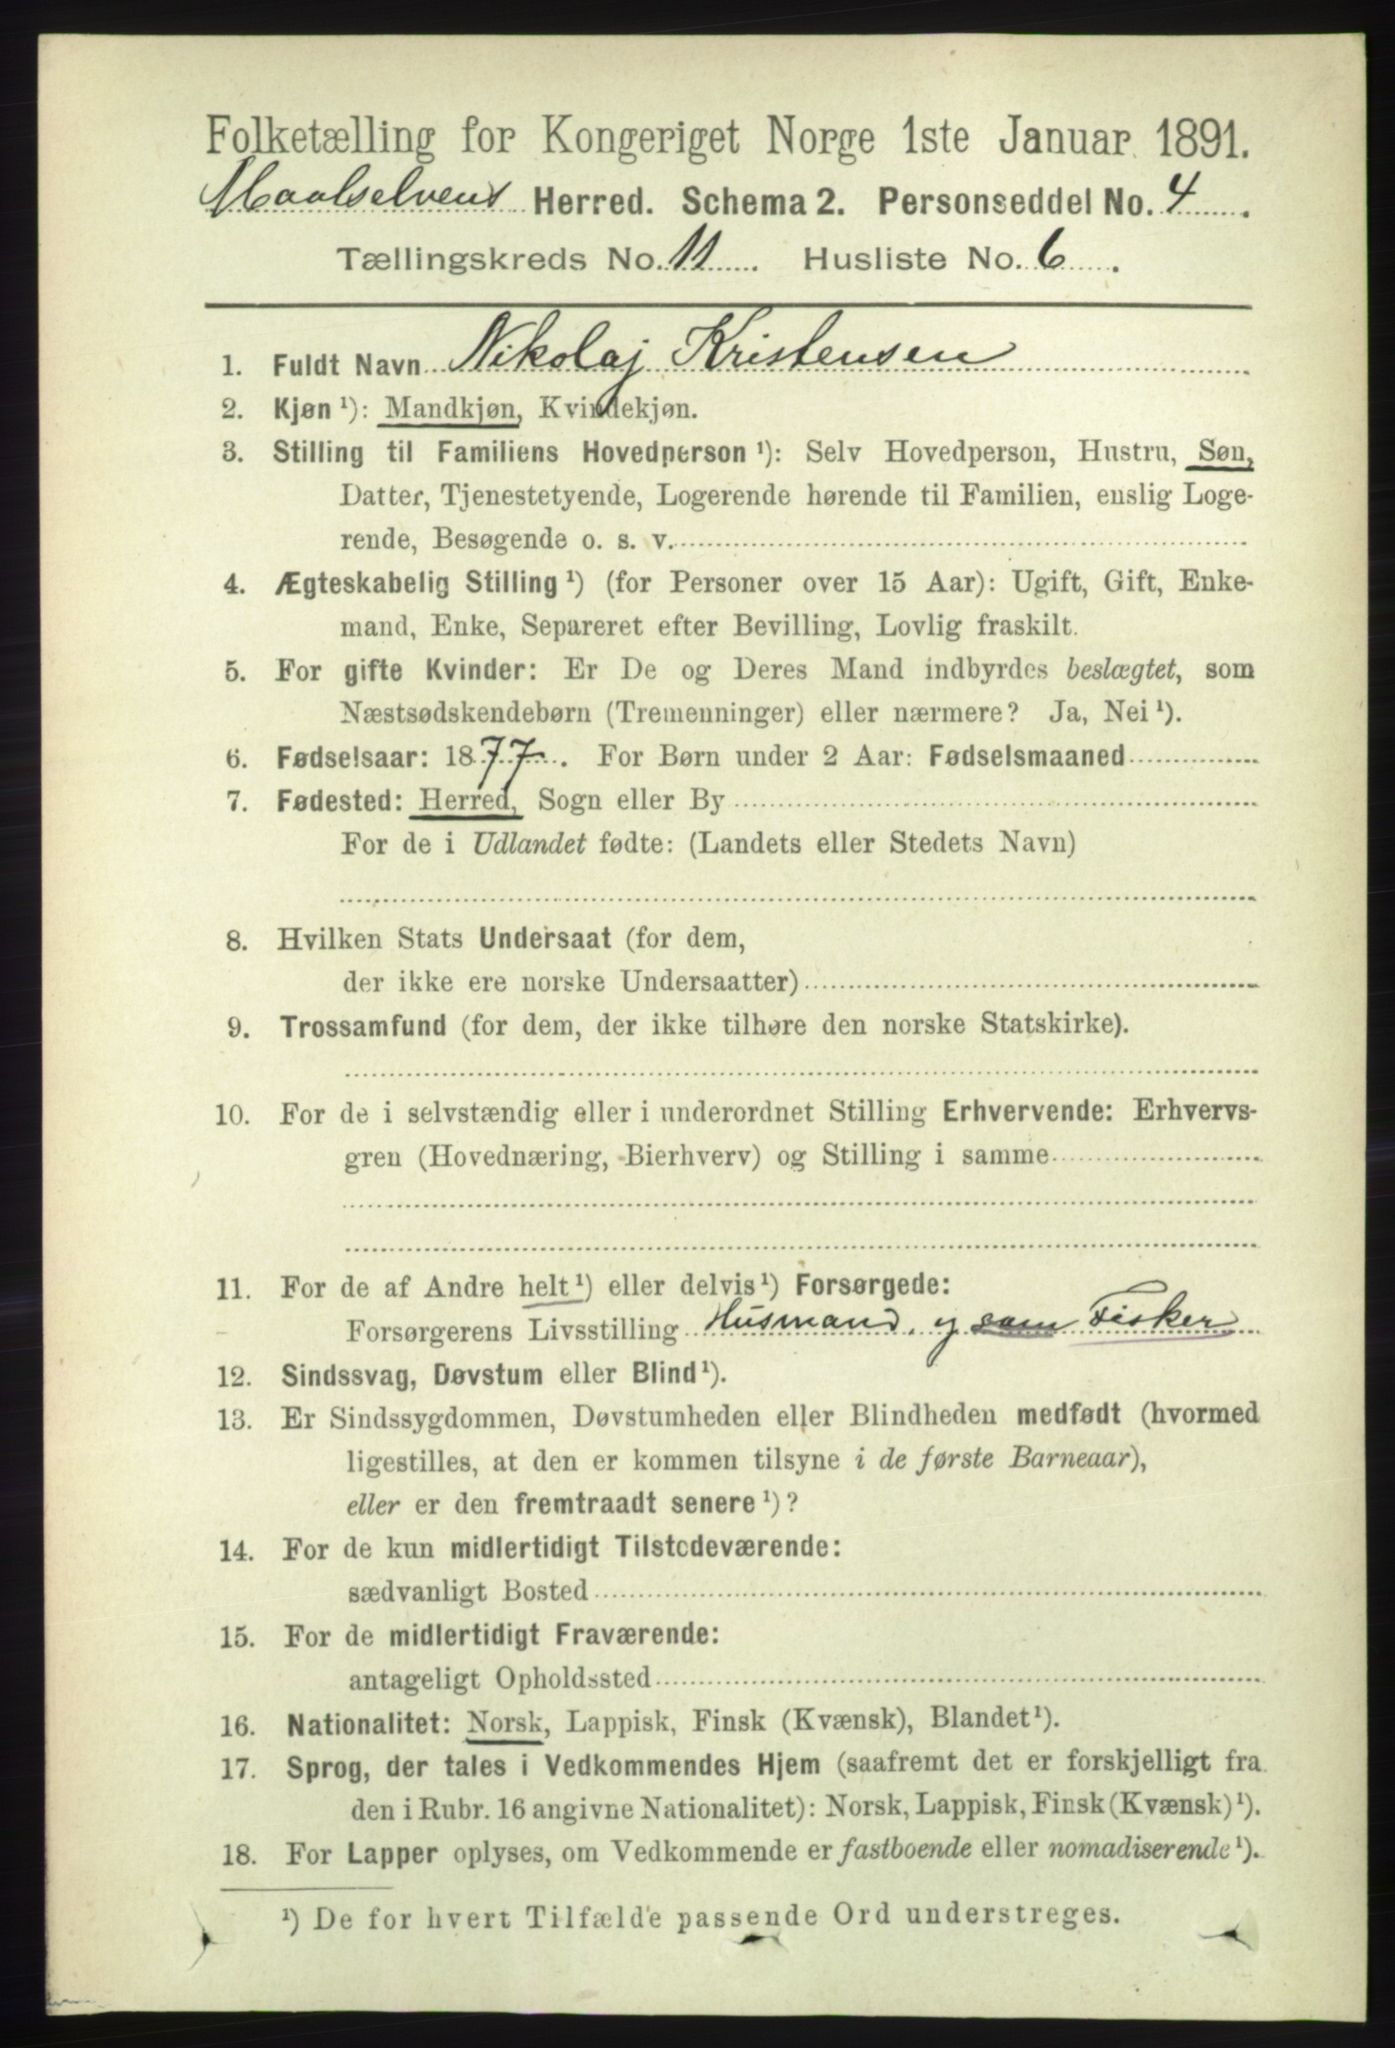 Folketælling for Kongeriget Norge 1ste Januar 1891.
Maalselvens Herred. Schema 2. Personseddel No. 4
Tællingskreds No. 11. Husliste No. 6.
1. Fuldt Navn Nikolaj Kristensen
2. Kjøn ¹): Mandkjøn, Kvindekjøn.
3. Stilling til Familiens Hovedperson ¹): Selv Hovedperson, Hustru, Søn,
Datter, Tjenestetyende, Logerende hørende til Familien, enslig Loge-
rende, Besøgende o. s. v.
4. Ægteskabelig Stilling ¹) (for Personer over 15 Aar): Ugift, Gift, Enke-
mand, Enke, Separeret efter Bevilling, Lovlig fraskilt.
5. For gifte Kvinder: Er De og Deres Mand indbyrdes beslægtet, som
Næstsødskendebørn (Tremenninger) eller nærmere? Ja, Nei ¹).
6. Fødselsaar: 1877. For Børn under 2 Aar: Fødselsmaaned
7. Fødested: Herred, Sogn eller By
For de i Udlandet fødte: (Landets eller Stedets Navn)
8. Hvilken Stats Undersaat (for dem,
der ikke ere norske Undersaatter)
9. Trossamfund (for dem, der ikke tilhøre den norske Statskirke).
10. For de i selvstændig eller i underordnet Stilling Erhvervende: Erhvervs-
gren (Hovednæring, Bierhverv) og Stilling i samme
11. For de af Andre helt ¹) eller delvis ¹) Forsørgede:
Forsørgerens Livsstilling Husmand, og som Fisker
12. Sindssvag, Døvstum eller Blind ¹).
13. Er Sindssygdommen, Døvstumheden eller Blindheden medfødt (hvormed
ligestilles, at den er kommen tilsyne i de første Barneaar),
eller er den fremtraadt senere ¹)?
14. For de kun midlertidigt Tilstedeværende:
sædvanligt Bosted
15. For de midlertidigt Fraværende:
antageligt Opholdssted
16. Nationalitet: Norsk, Lappisk, Finsk (Kvænsk), Blandet ¹).
17. Sprog, der tales i Vedkommendes Hjem (saafremt det er forskjelligt fra
den i Rubr. 16 angivne Nationalitet): Norsk, Lappisk, Finsk (Kvænsk) ¹).
18. For Lapper oplyses, om Vedkommende er fastboende eller nomadiserende ¹).
¹) De for hvert Tilfælde passende Ord understreges.